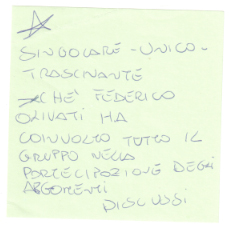 SINGOLARE - UNICO -
TRASCINANTE
XCHÉ FEDERICO
OLIVATI HA
COINVOLTO TUTTO IL
GRUPPO NELLA
PARTECIPAZIONE DEGLI
ARGOMENTI
DISCUSSI